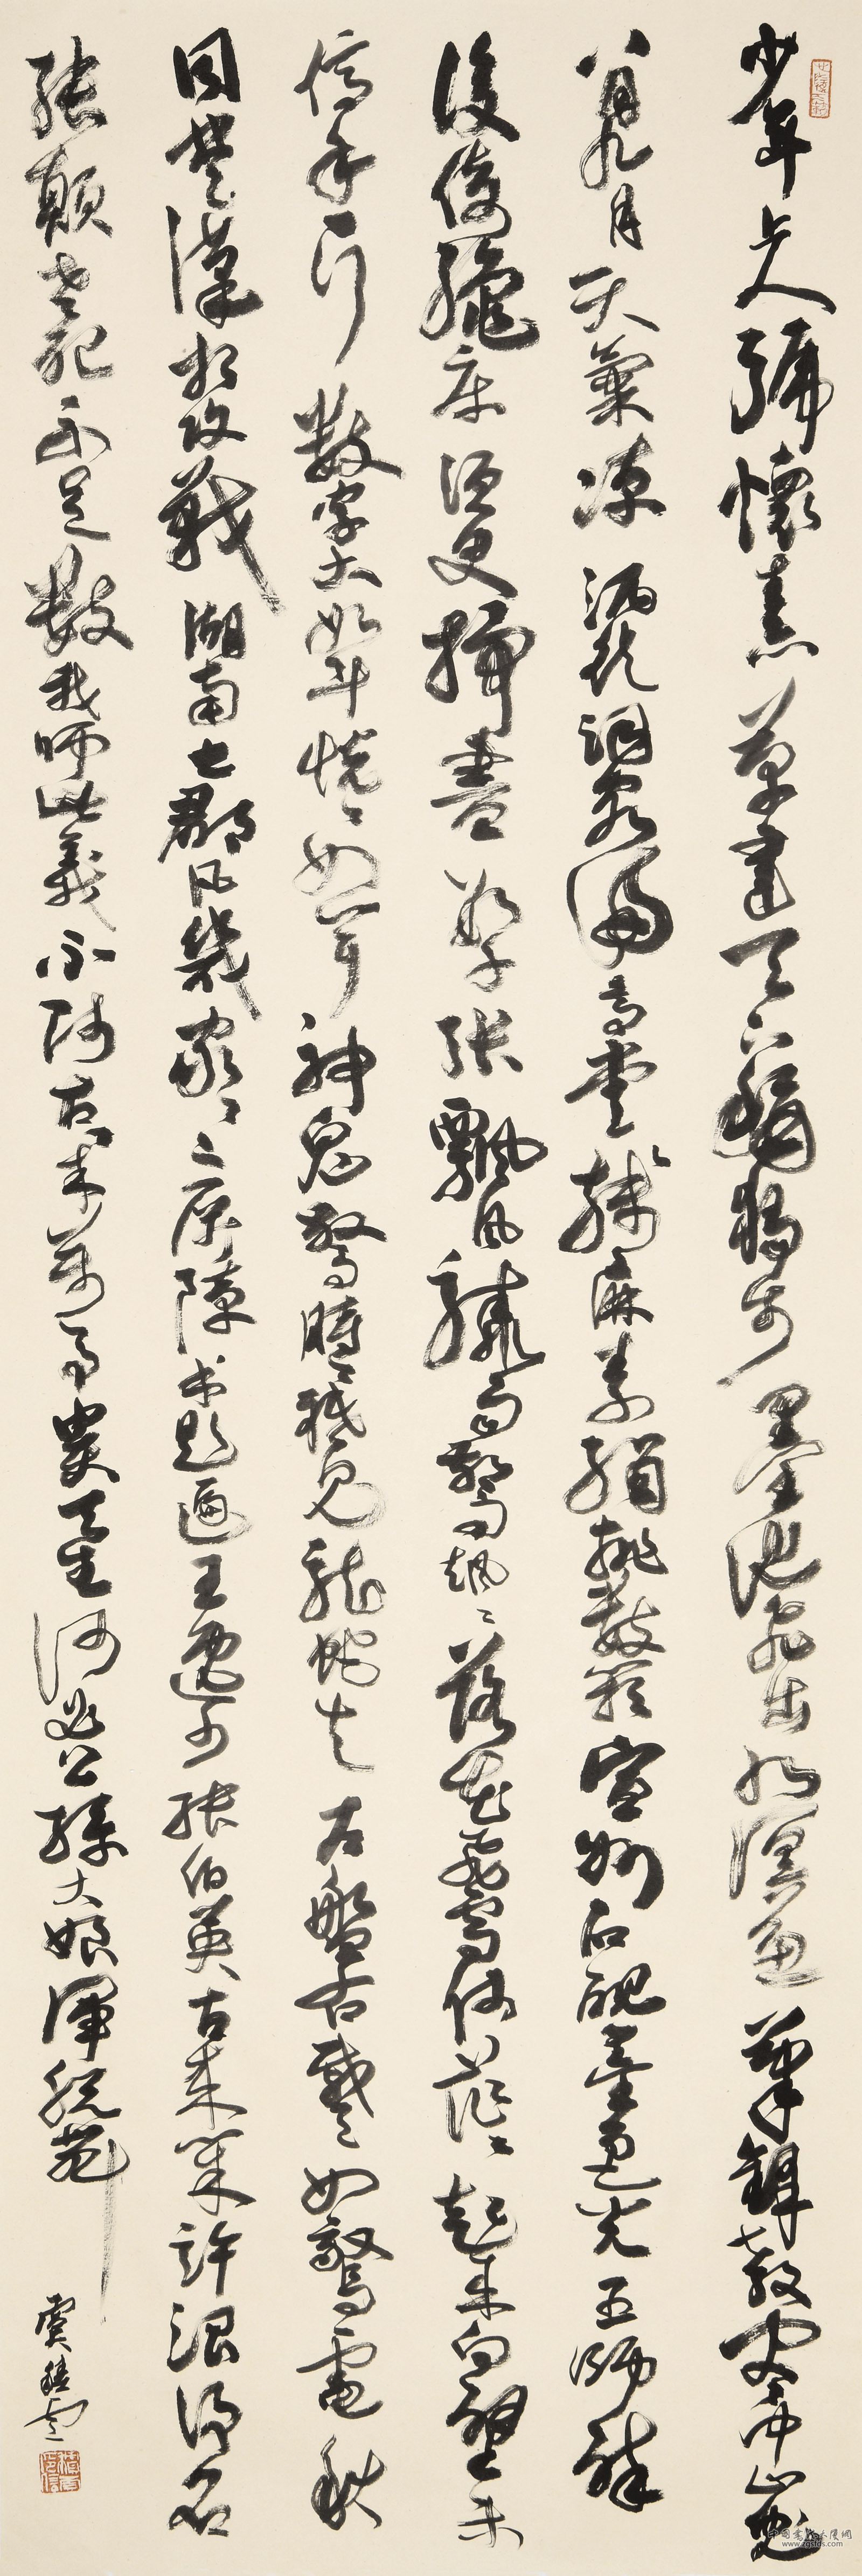 少年上人號懷素草書天下稱獨步墨池飛出北溟魚筆鋒殺盡中山兔
八月九月天氣涼酒徒詞客滿高堂牋麻素絹排數箱宣州石硯墨色光吾師醉
後倚繩床須臾掃盡數千張飄風驟雨驚颯々落花飛雪何茫々起來向壁不
停手一行數字大如斗怳々如聞神鬼驚時々秖見龍蛇走左盤右蹙如驚電狀
同楚漢相攻戰湖南七郡凡幾家家々屏障書題遍王逸少張伯英古來幾許浪得名
張顛老死不足數我師此義不師古々來萬事貴天生何必公孫大娘渾脫舞
虞